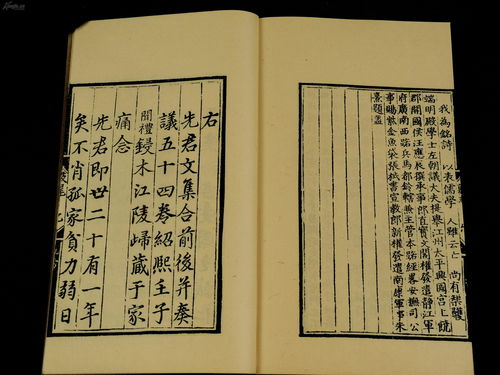 我為銘詩 以表儒學 人雖云亡 尚有榘矱
端明殿學士左朝議大夫提舉江州太平興國宮上饒
郡開國侯汪應辰撰承事郎直寶文閣權發遣靜江軍
府廣南西路兵馬都鈐轄兼主管本路經畧安撫司公
事賜紫金魚袋張栻書宣教郎新權發遣南康軍事朱
熹題盖
右
先君文集合前後并奏
議五十四卷紹熙壬子
開禮鋟木江陵歸藏于家
痛念
先君即世二十有一年
矣不肖孤家貧力弱日